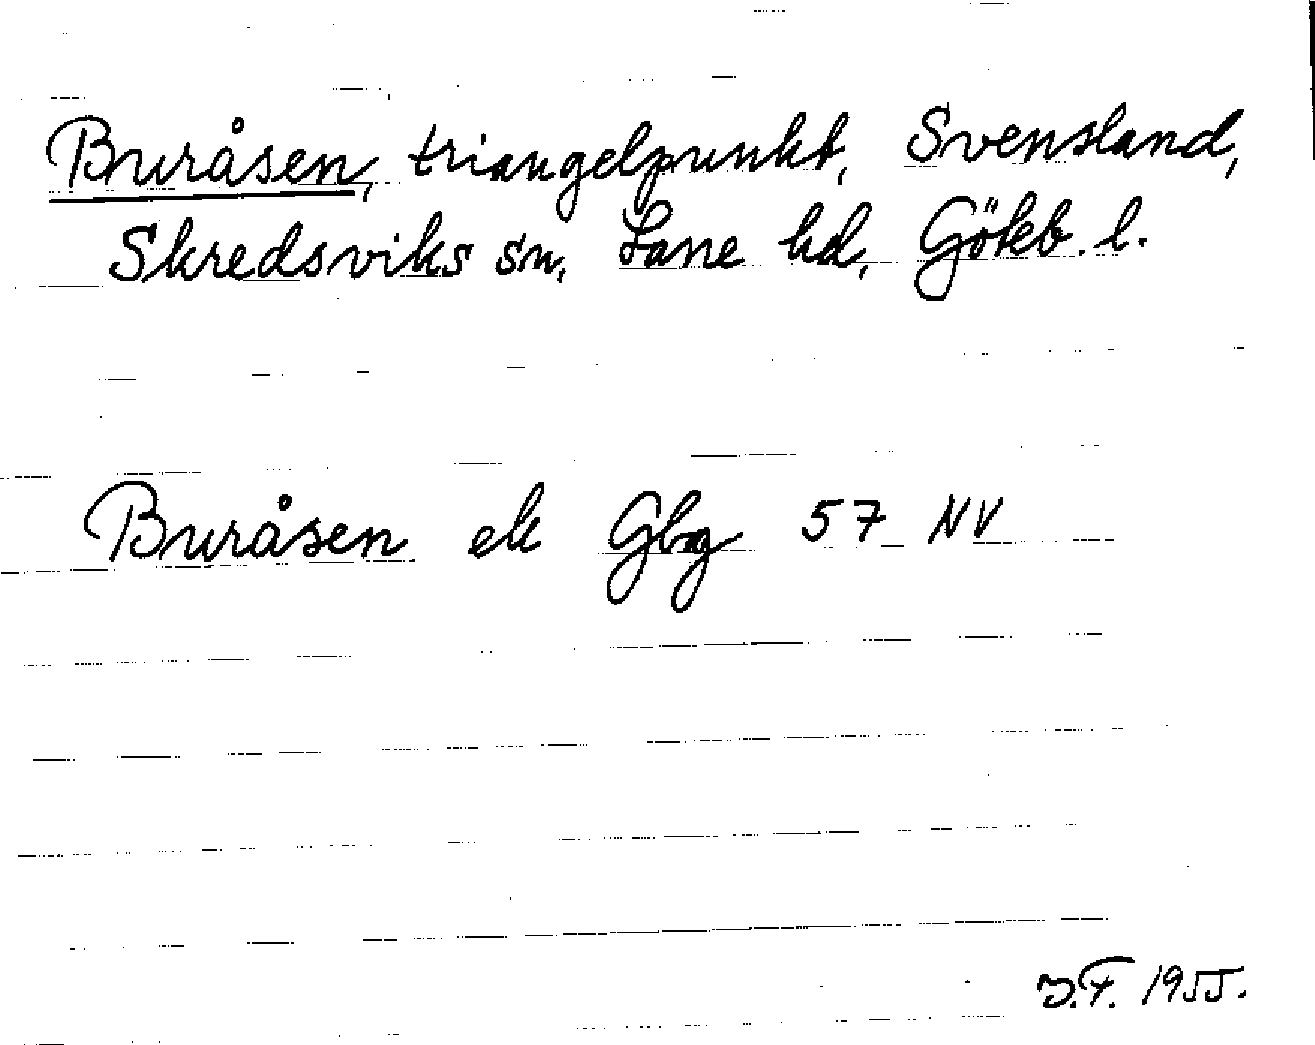 Buråsen, triangelpunkt, Svensland,
Skredsviks sn, Lane hd, Göteb. l.
Buråsen ek Gbg 57 NV
J.F. 1955.